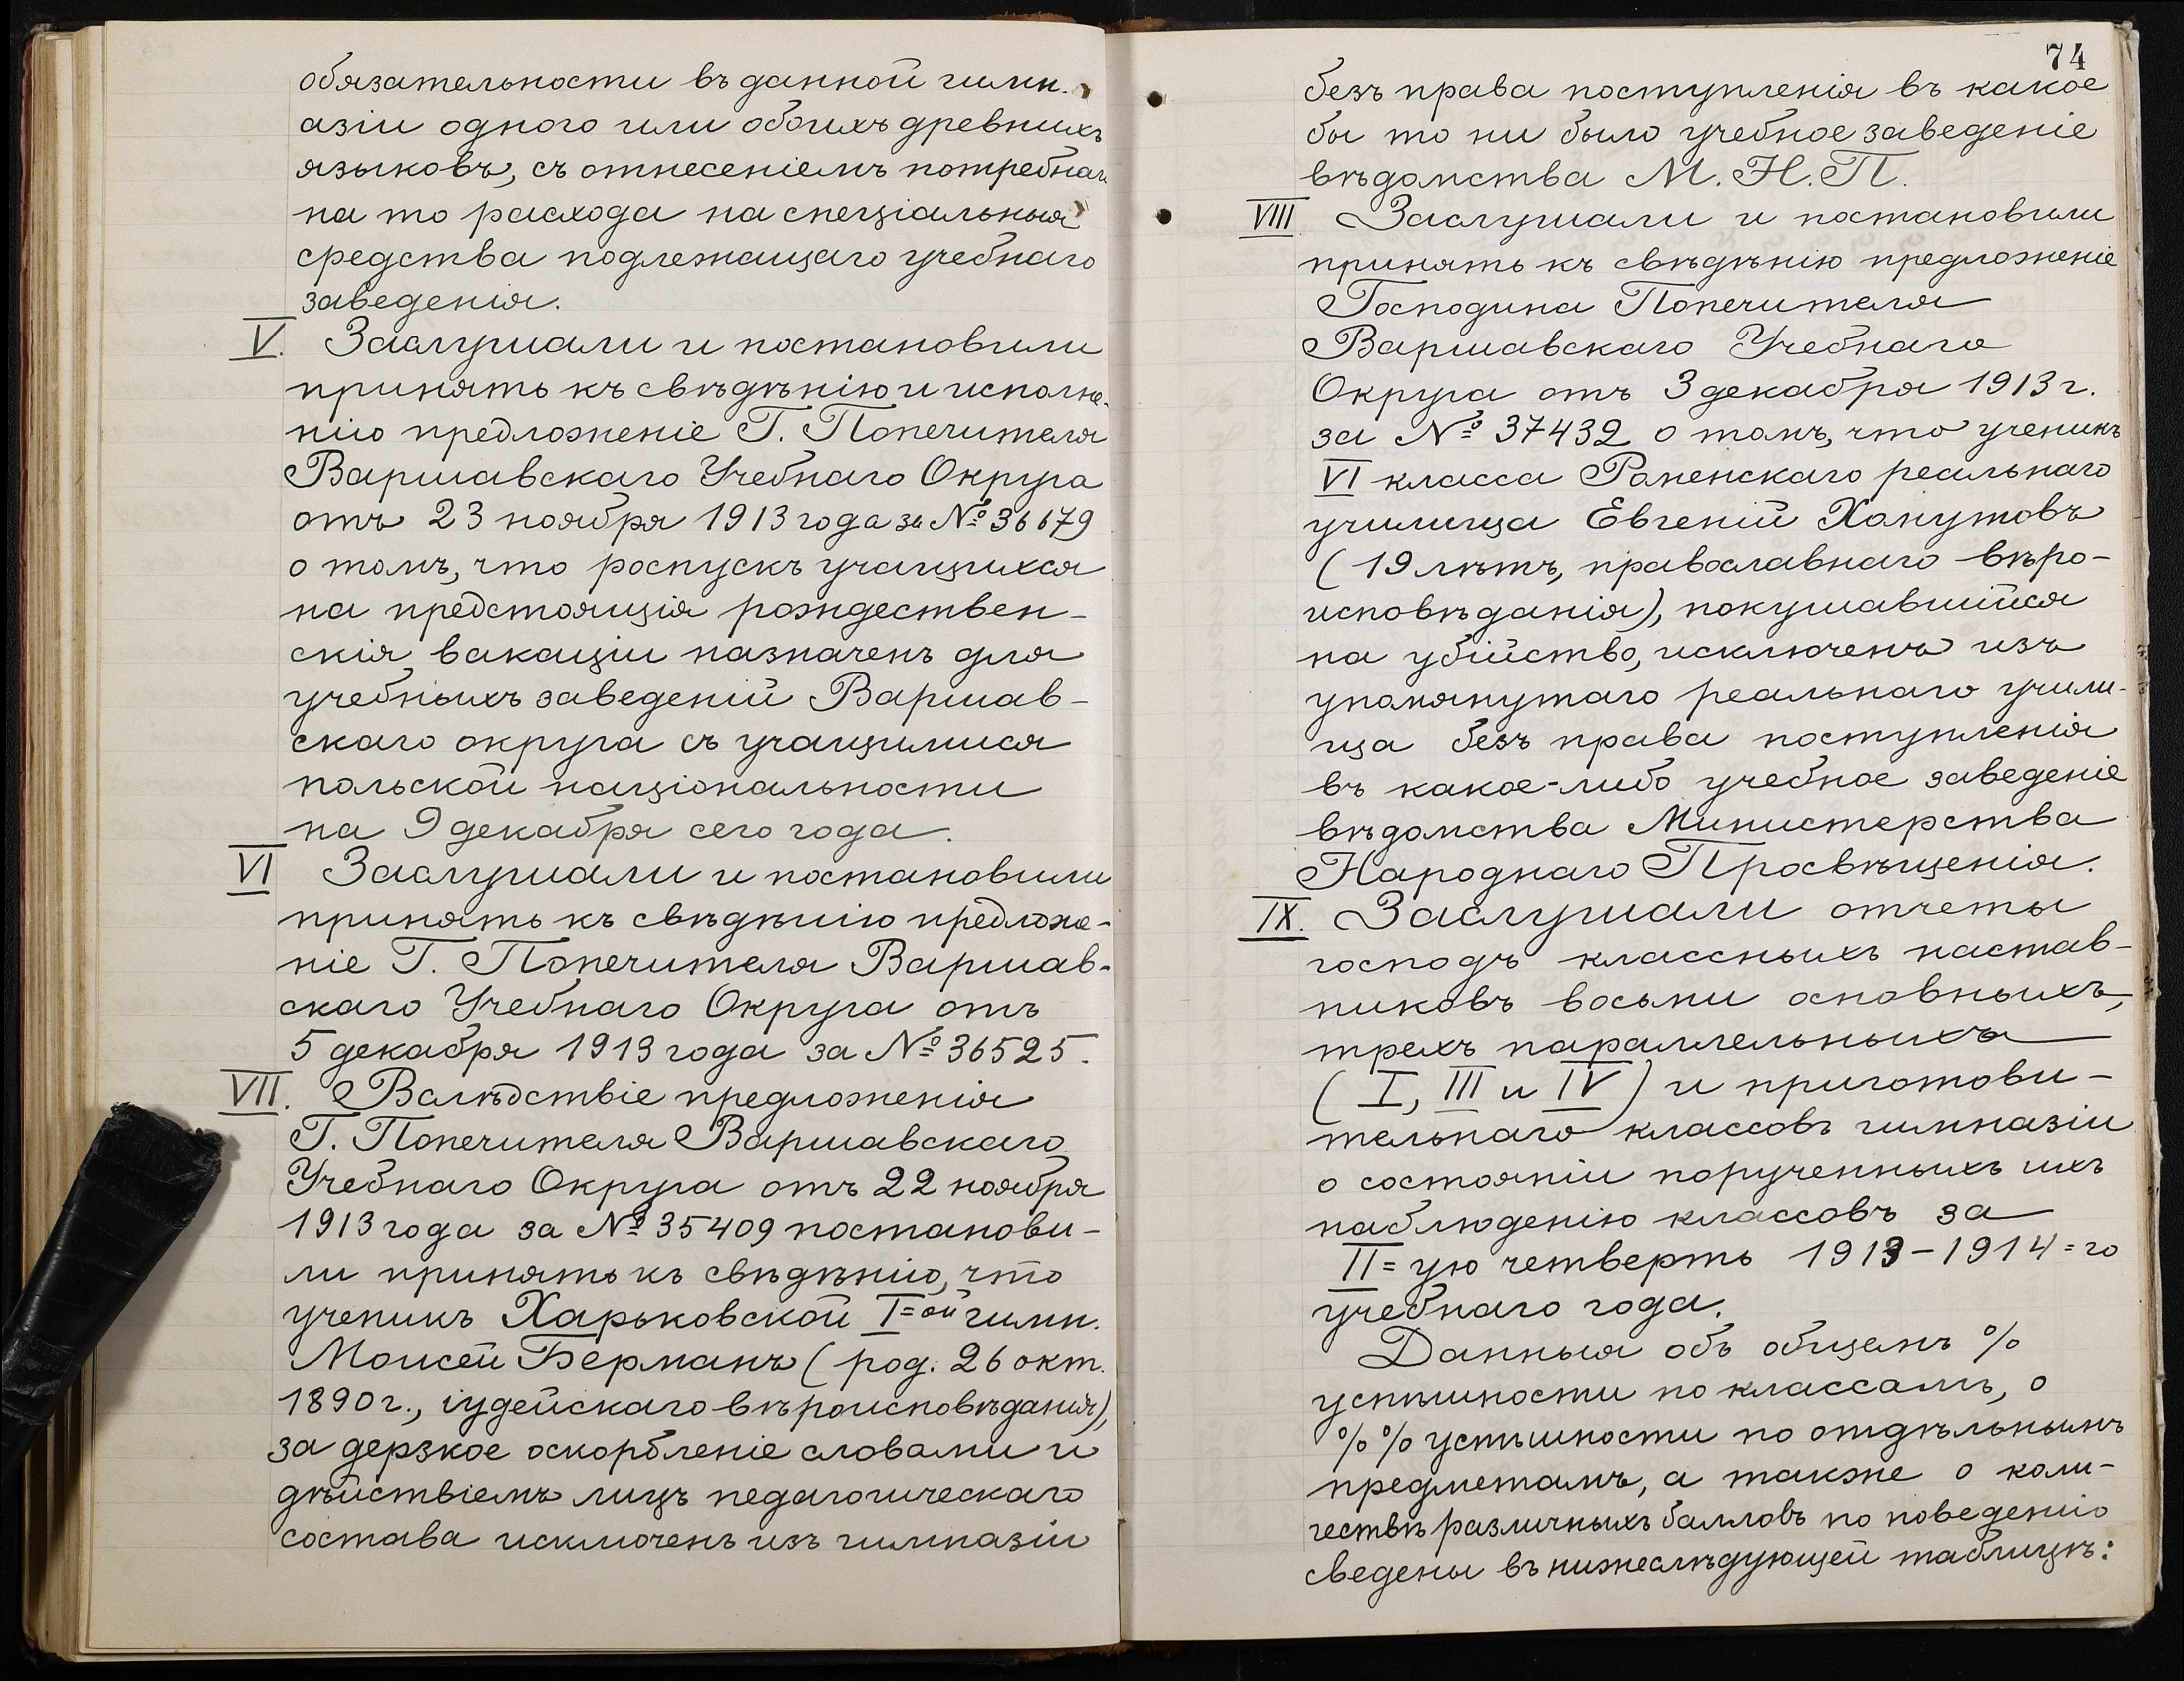 обязательности въ данной гимн-
азіи одного или обоихъ древнихъ
языковъ, съ отнесеніемъ потребнаго
на то расхода на спеціальныя
средства подлежащаго учебнаго
заведенія.
V. Заслушали и постановили
принять къ свѣдѣнію и исполне-
нію предложеніе Г. Попечителя
Варшавскаго Учебнаго Округа
отъ 23 ноября 1913 года за № 36679
о томъ, что роспускъ учащихся
на предстоящія рождествен-
скія вакаціи назначенъ для
учебныхъ заведеній Варшав-
скаго округа съ учащимися
польской національности
на 9 декабря сего года.
VI Заслушали и постановили
принять къ свѣдѣнію предложе-
ніе Г. Попечителя Варшав-
скаго Учебнаго Округа отъ
5 декабря 1913 года за № 36525.
VII. Вслѣдствіе предложенія
Г. Попечителя Варшавскаго
Учебнаго Округа отъ 22 ноября
1913 года за № 35409 постанови-
ли принять къ свѣдѣнію, что
ученикъ Харьковской I=ой гимн.
Моисей Берманъ (род. 26 окт.
1890 г., іудейскаго вѣроисповѣданія),
за дерзкое оскорбленіе словами и
дѣйствіемъ лицъ педагогическаго
состава исключенъ изъ гимназіи
74
безъ права поступленія въ какое
бы то ни было учебное заведеніе
вѣдомства М. Н. П.
VIII. Заслушали и постановили
принять къ свѣдѣнію предложеніе
Господина Попечителя
Варшавскаго Учебнаго
Округа отъ 3 декабря 1913 г.
за № 37432 о томъ, что ученикъ
VI класса Роменскаго реальнаго
училища Евгеній Хонутовъ
(19 лѣтъ, православнаго вѣро-
исповѣданія), покушавшійся
на убійство, исключенъ изъ
упомянутаго реальнаго учили-
ща безъ права поступленія
въ какое-либо учебное заведеніе
вѣдомства Министерства
Народнаго Просвѣщенія.
IX. Заслушали отчеты
господъ классныхъ настав-
никовъ восьми основныхъ,
трехъ параллельныхъ
(I, III и IV) и приготови-
тельнаго классовъ гимназіи
о состояніи порученныхъ ихъ
наблюденію классовъ за
II=ую четверть 1913-1914=го
учебнаго года.
Данныя объ общемъ %
успѣшности по классамъ, о
%% успѣшности по отдѣльнымъ
предметамъ, а также о коли-
чествѣ различныхъ балловъ по поведенію
сведены въ нижеслѣдующей таблицѣ: